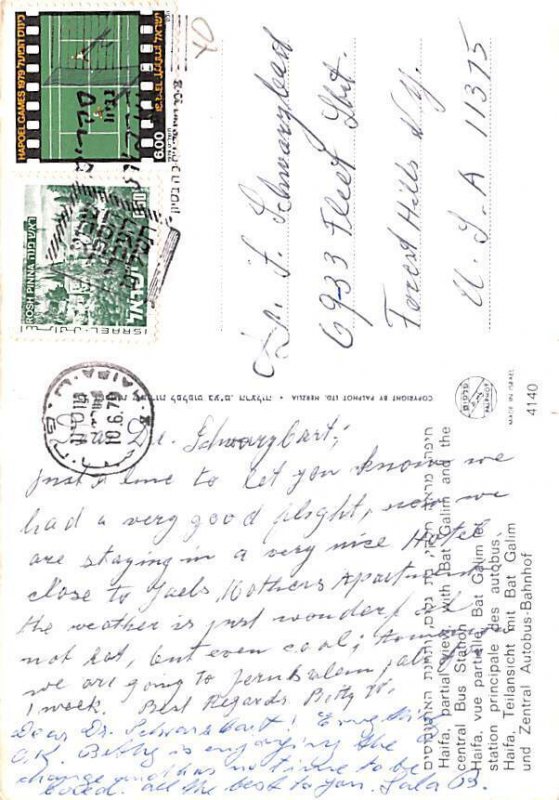 HAPOEL GAMES 1979 כינוס הפועל
ישראל ISRAEL
6.00
ROSH PINNA ראש פנה
1.50
ישראל ISRAEL
HAIFA
10.6.79
Dr. F. Schwarzbart
6933 Fleet Str.
Forest Hills N.Y.
U.S.A 11375
COPYRIGHT BY PALPHOT LTD. HERZLIA
פלפוט
PALPHOT
MADE IN ISRAEL
4140
חיפה, מראה חלקי, בת גלים, ותחנת האוטובוסים
Haifa, partial view, with Bat Galim and the
central Bus Station
Haifa, vue partielle, Bat Galim et
station principale des autobus
Haifa, Teilansicht mit Bat Galim
und Zentral Autobus-Bahnhof
Dear Dr. Schwarzbart,
just a line to let you know we
had a very good flight, now we
are staying in a very nice Hotel
close to Yaels, Mothers Apartment
the weather is just wonderful
not hot, but even cool;
we are going to Jerusalem for
1 week. Best Regards Betty W,
Dear Dr. Schwarzbart! Everything
O.K. Betty is enjoying the
change and has no time to be
bored. All the best to you. Lala